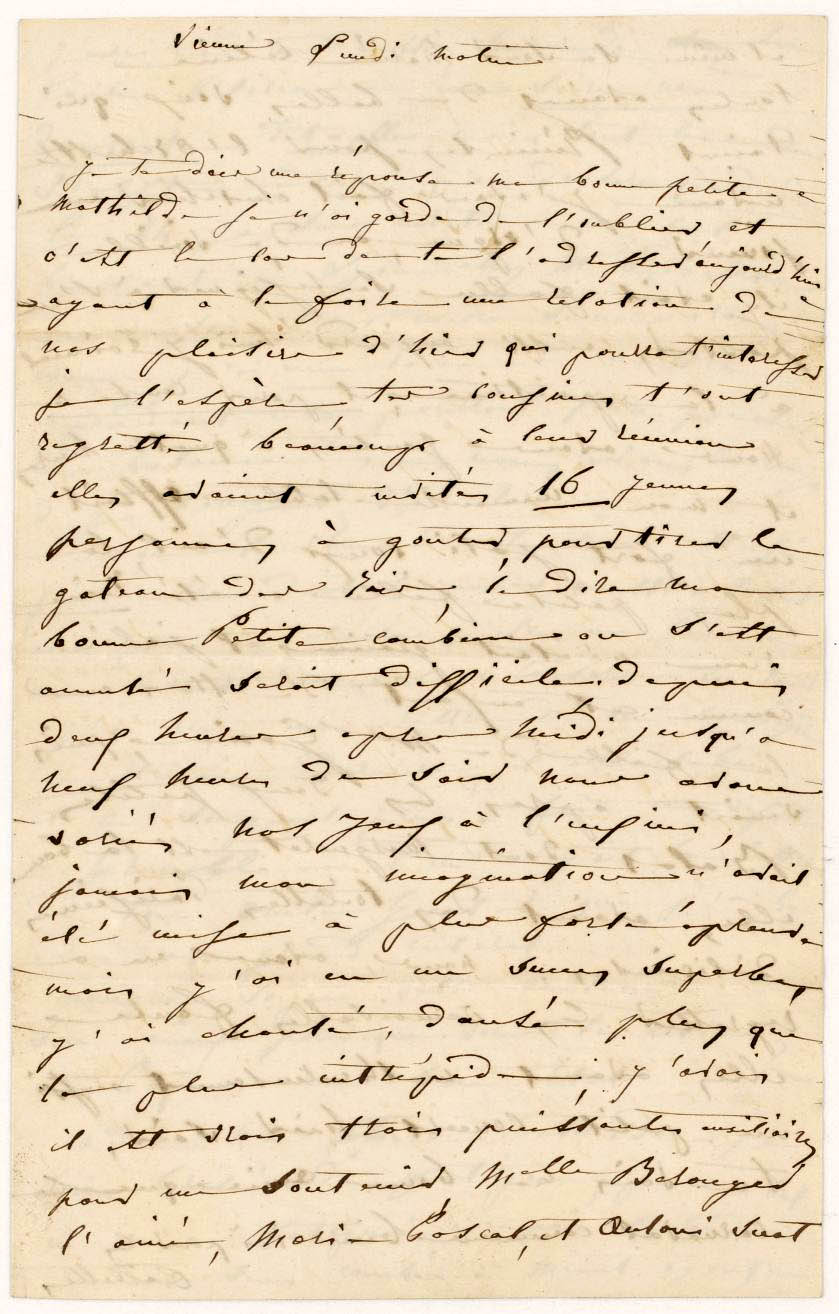 Vienne Lundi matin
Je te dois une réponse ma bonne petite
Mathilde je n'ai garde de l'oublier et
c'est le cas de te l'adresser aujourd'hui
ayant à te faire une relation de
nos plaisirs d'hier qui pourra t'intéresser
je l'espère tes cousines t'ont
regretté beaucoup à leur réunion
elles avaient invités 16 jeunes
personnes à gouter pour tirer le
gateau des rois te dire ma
bonne Petite combien on s'est
amusé serait difficile. depuis
deux heures après midi jusqu'à
neuf heures du soir nous avons
variés nos jeux à l'infini,
jamais mon imagination n'avait
été mise à plus forte épreuve
mais j'ai eu un succès superbe,
j'ai chanté, dansé plus que
la plus intrépide, j'avais
il est vrais trois puissantes auxiliaires
pour me soutenir, Melle Berenger
l'ainé, Marie Pascal, et Antoni